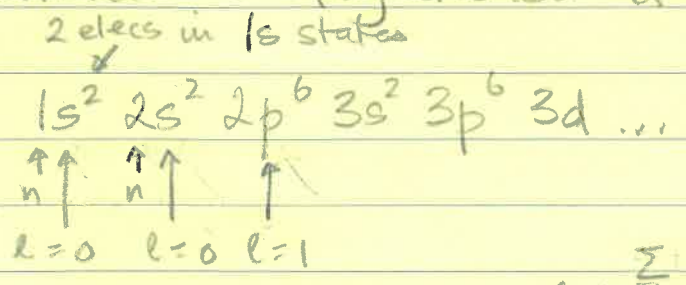 2 elecs in 1s states
1s² 2s² 2p⁶ 3s² 3p⁶ 3d ...
n n
l=0 l=0 l=1
Σ